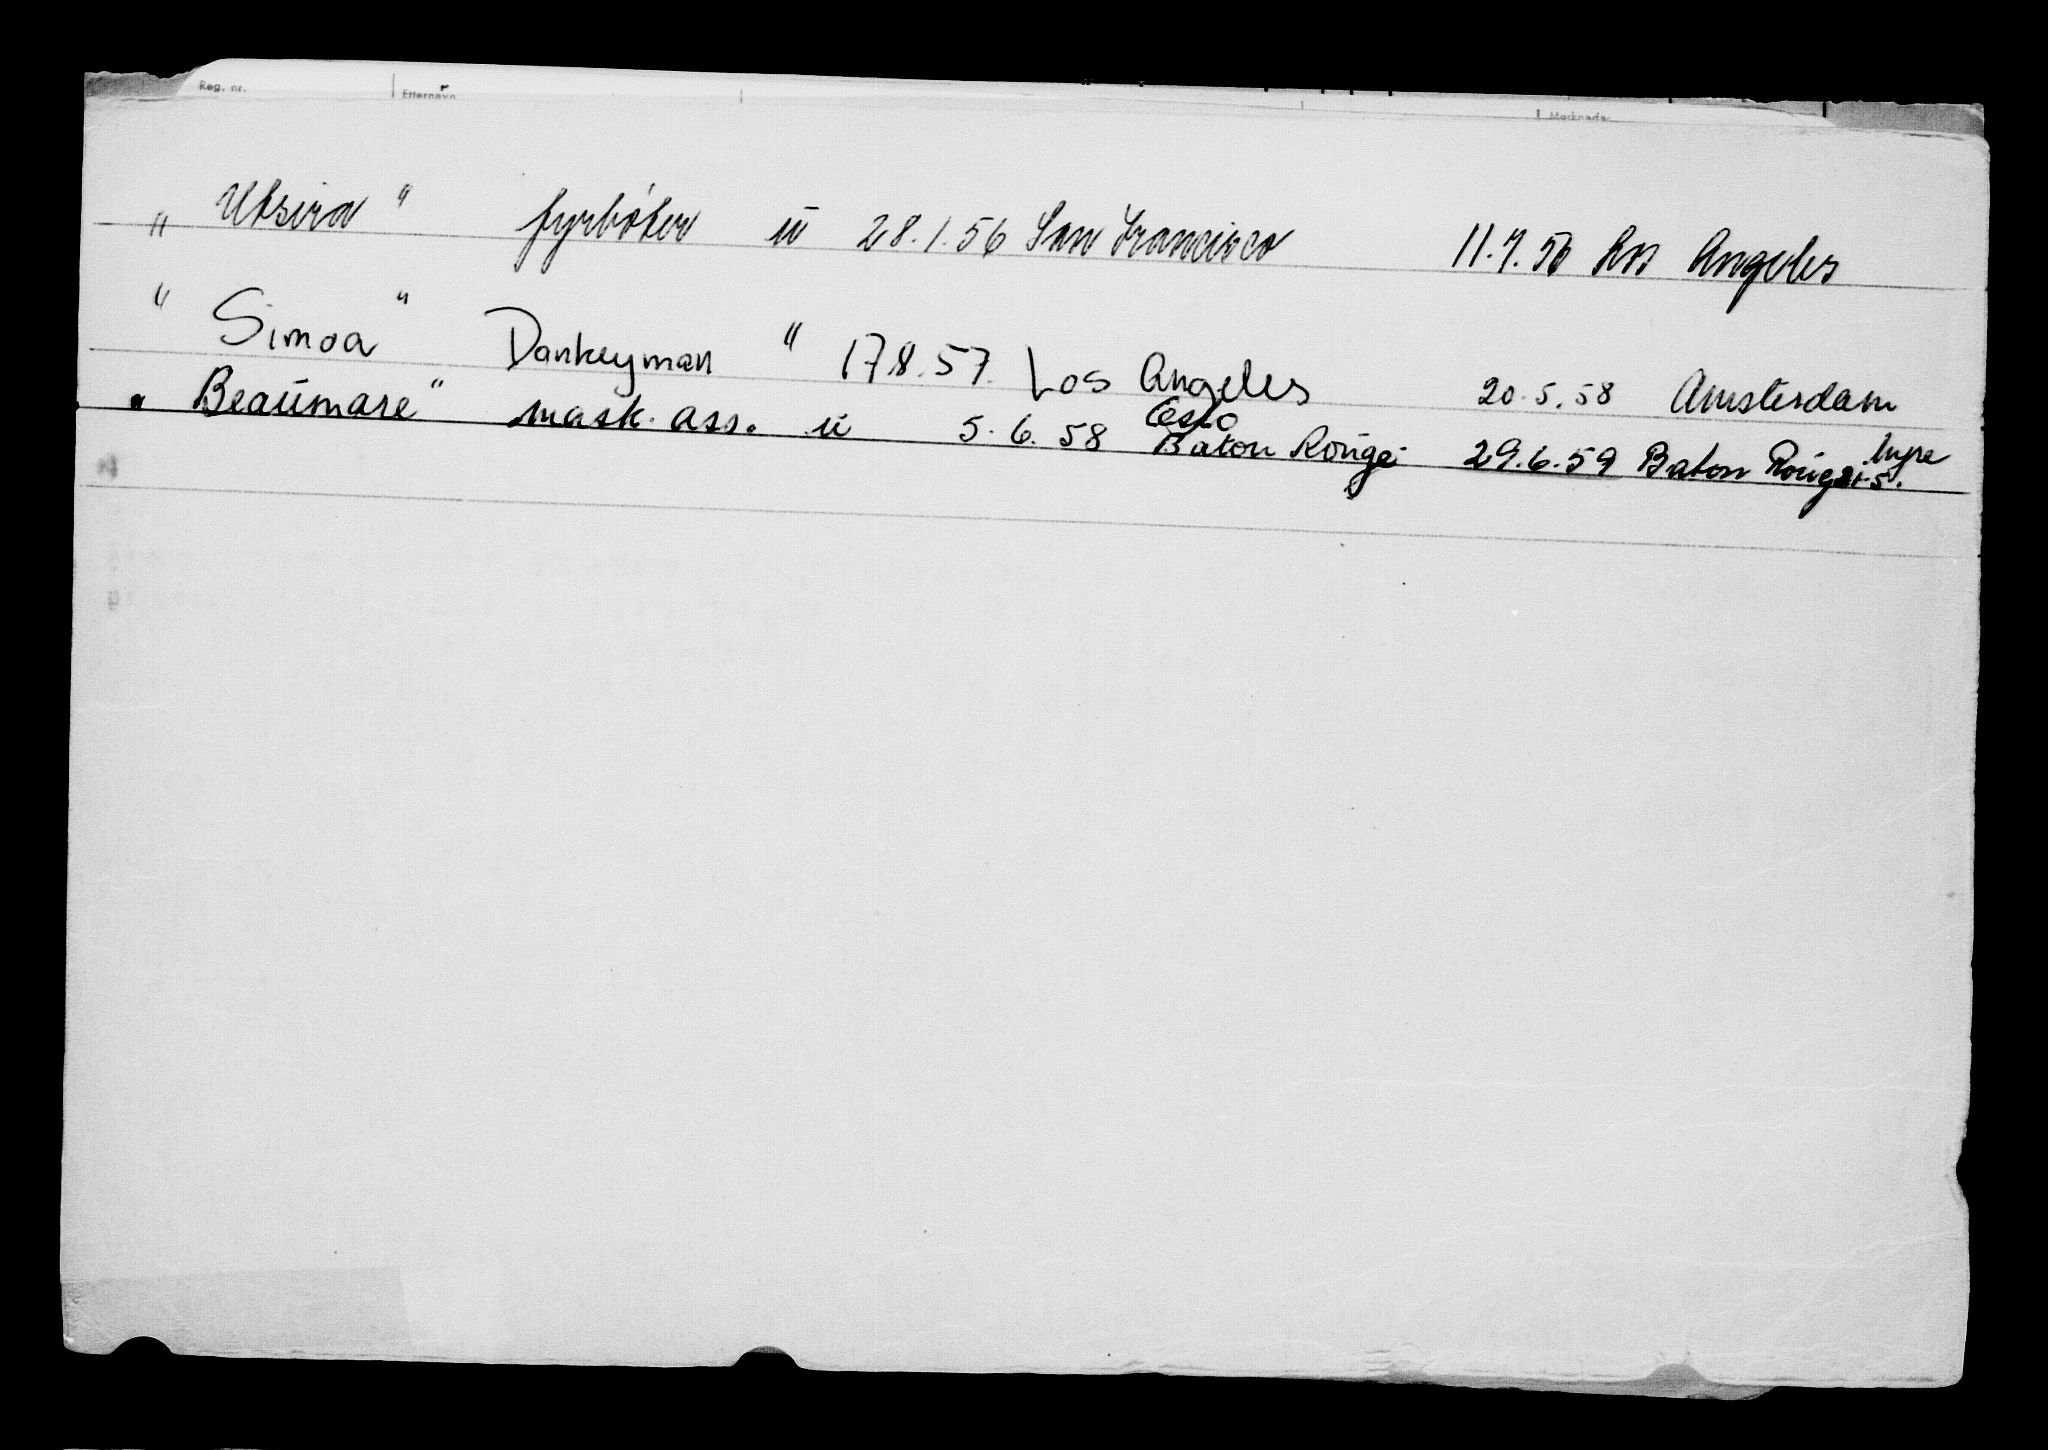 Reg. nr. Etternavn Merknader
„ Utsira " fyrbøter u 28.1.56 San Francisco 11.7.56 Los Angeles
" Simoa " Dankeyman " 17.8.57. Los Angeles 20.5.58 Amsterdam
" Beaumare " mask. ass. u 5.6.58 Oslo Baton Rouge 29.6.59 Baton Rouge